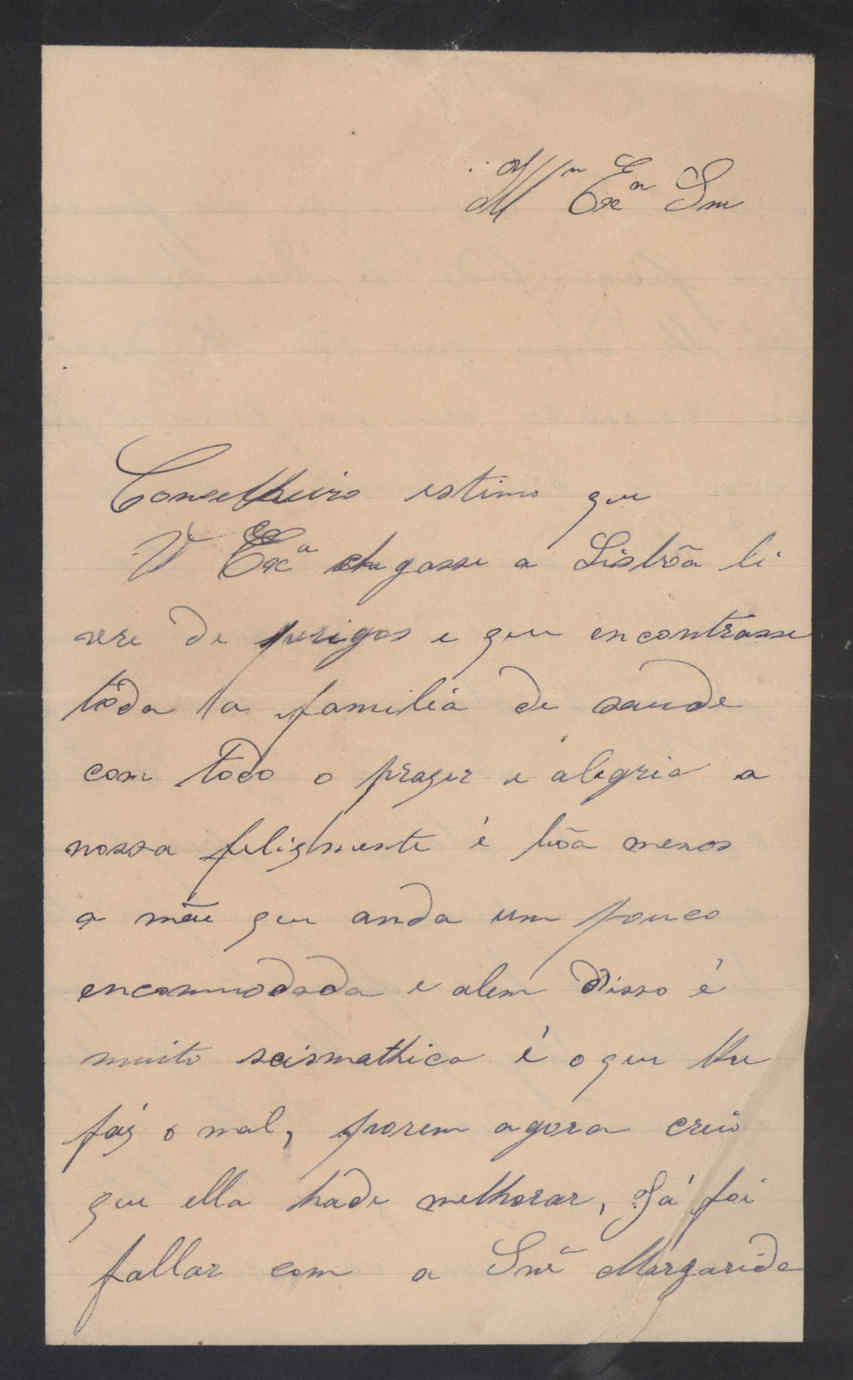 Illmo Exmo Snr
Conselheiro estimo que
V Exca chegasse a Lisbôa li
vre de perigos e que encontrasse
tôda a familia de saude
com todo o prazer e alegria a
nossa felizmente é bôa menos
a mãe que anda um pouco
encommodada e alem disso é
muito scismathica é o que lhe
fáz o mal, porem agora creio
que ella hade melhorar, Já foi
fallar com a Snra Margarida